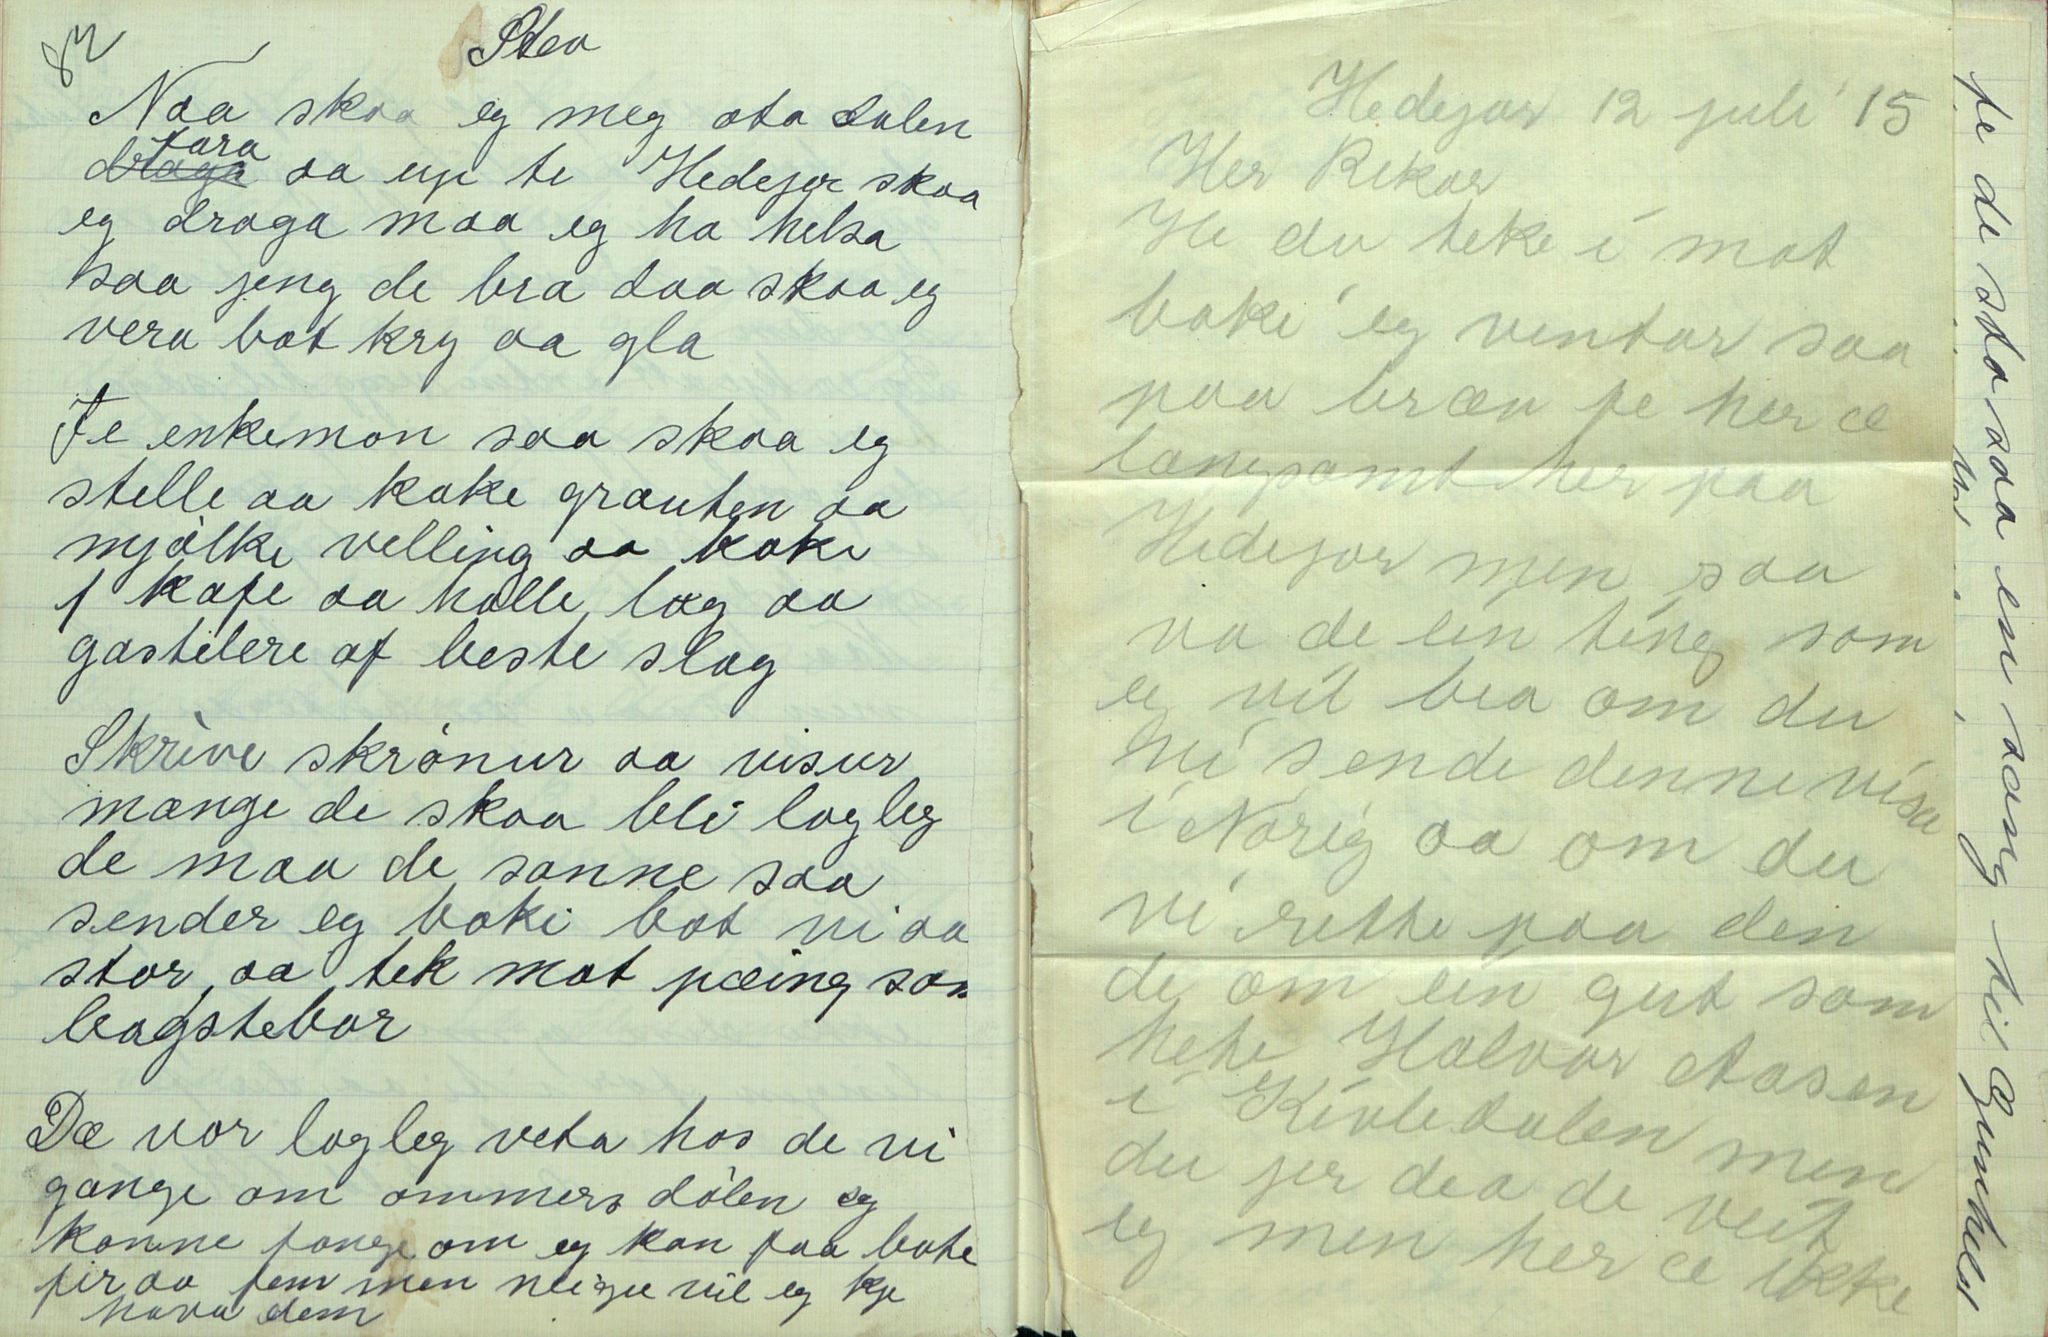 82
Stev
Naa skaa eg meg ota dalen
fara
draga aa up te Hedejor skaa
eg draga maa eg ha helsa
saa jeng de bra daa skaa eg
vera bot kry aa gla
Je enkemon saa skaa eg
stelle aa koke grauten aa
mjølke velling aa koke
kafe aa halle lag aa
gastebere af beste slag
Skrive skrønur aa visur
mange de skaa bli lagleg
de maa de sanne saa
sender eg boki bot vi aa
stor aa tek mot pæing som
bagstebor
Dæ vor lagleg veta hos de vi
gange om ommers dølen eg
konne fange om eg kan faa bote
fir aa fem men vil eg kje
hava dem
Hedejor 12 juli 15
Her Rikar
He du teke i mot
boki eg ventar saa
paa bræv fe her æ
langsomt her paa
Hedejor men saa
va de ein ting som
eg vil bea om du
vi sende denne visa
i Norig aa om du
vi rette paa den
de æm ein gut som
hete Halvor Aasen
i Kivledalen men
du jer dea de veit
eg men her æ ikke
fe de sto saa em sang til Gunhild